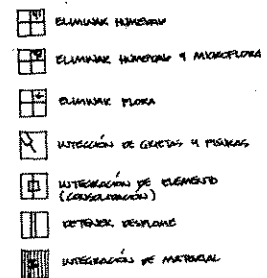 ELIMINAR HUMEDAD
ELIMINAR HUMEDAD Y MICROFLORA
ELIMINAR FLORA
INYECCIÓN DE GRIETAS Y FISURAS
INTEGRACIÓN DE ELEMENTO
(CONSOLIDACIÓN)
DETENER DESPLOME
INTEGRACIÓN DE MATERIAL